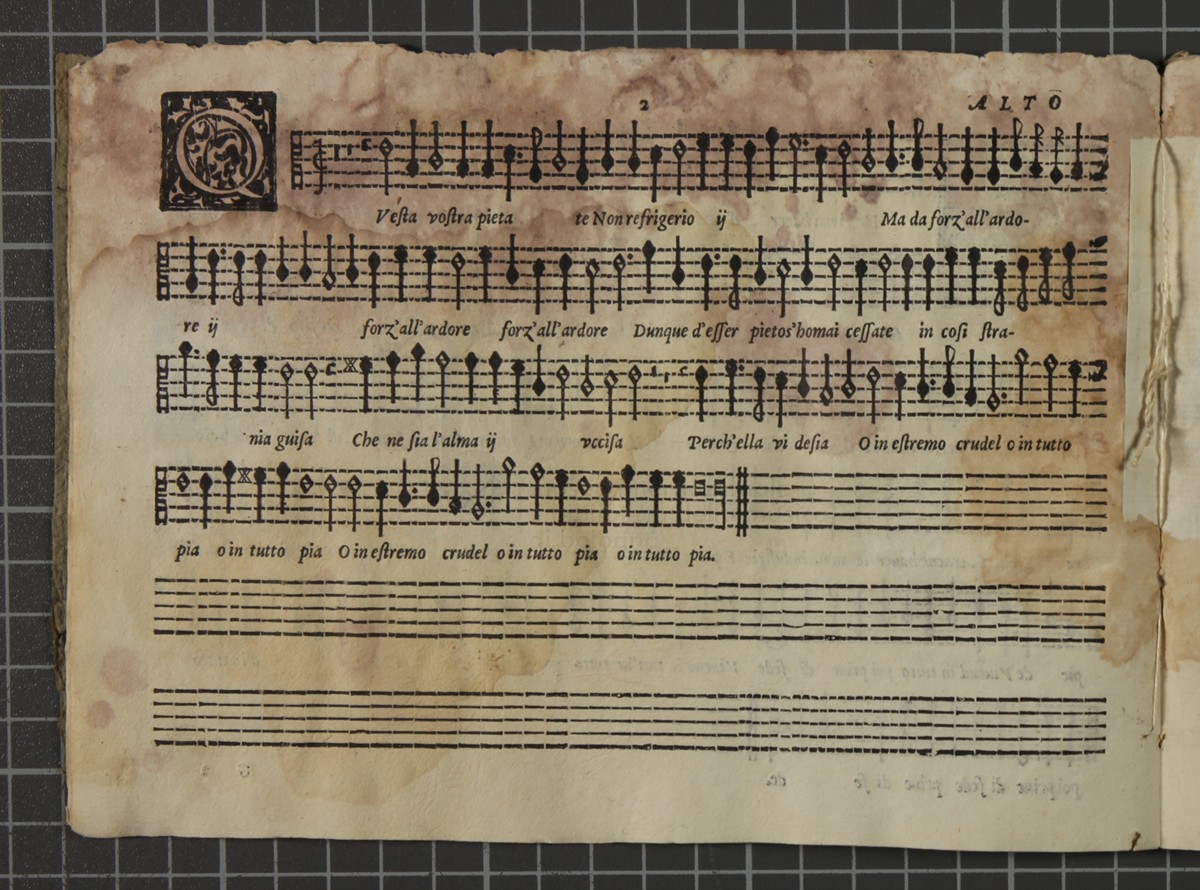 2 ALTO
QVesta vostra pieta te Non refrigerio ij Ma da forz'all'ardo-
re ij forz'all'ardore forz'all'ardore Dunque d'esser pietos'homai cessate in cosi stra-
nia guisa Che ne sia l'alma ij vccisa Perch'ella vi desia O in estremo crudel o in tutto
pia o in tutto pia O in estremo crudel o in tutto pia o in tutto pia.